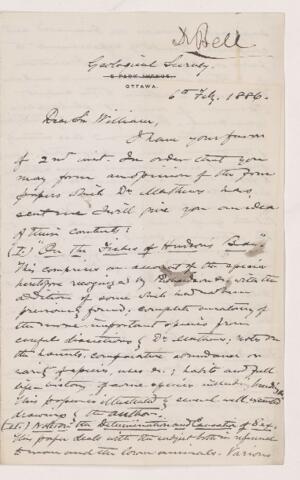 Dr Bell
Geological Survey.
5 PARK AVENUE
OTTAWA.
6th Feby. 1886.
Dear Sir William,
I have your favor
of 2nd inst. In order that you
may form an opinion of the four
papers which Dr. Matthews has
sent me I will give you an idea
of their contents:
(1.) "On the Fishes of Hudson's Bay"
This comprises an account of the species
heretofore recognized by Richardson &c with the
addition of some which had not been
previously found; complete anatomy of
the more important species from
careful dissections by Dr. Matthews; notes on
the haunts, comparative abundance or
rarity of species, uses &c.; habits and full
life history of some species including breeding.
This paper is illustrated by several well executed
drawings by the author.
Notes on the Determination and Causation of Sex.
This paper deals with the subject both in reference
to man and the lower animals. Various